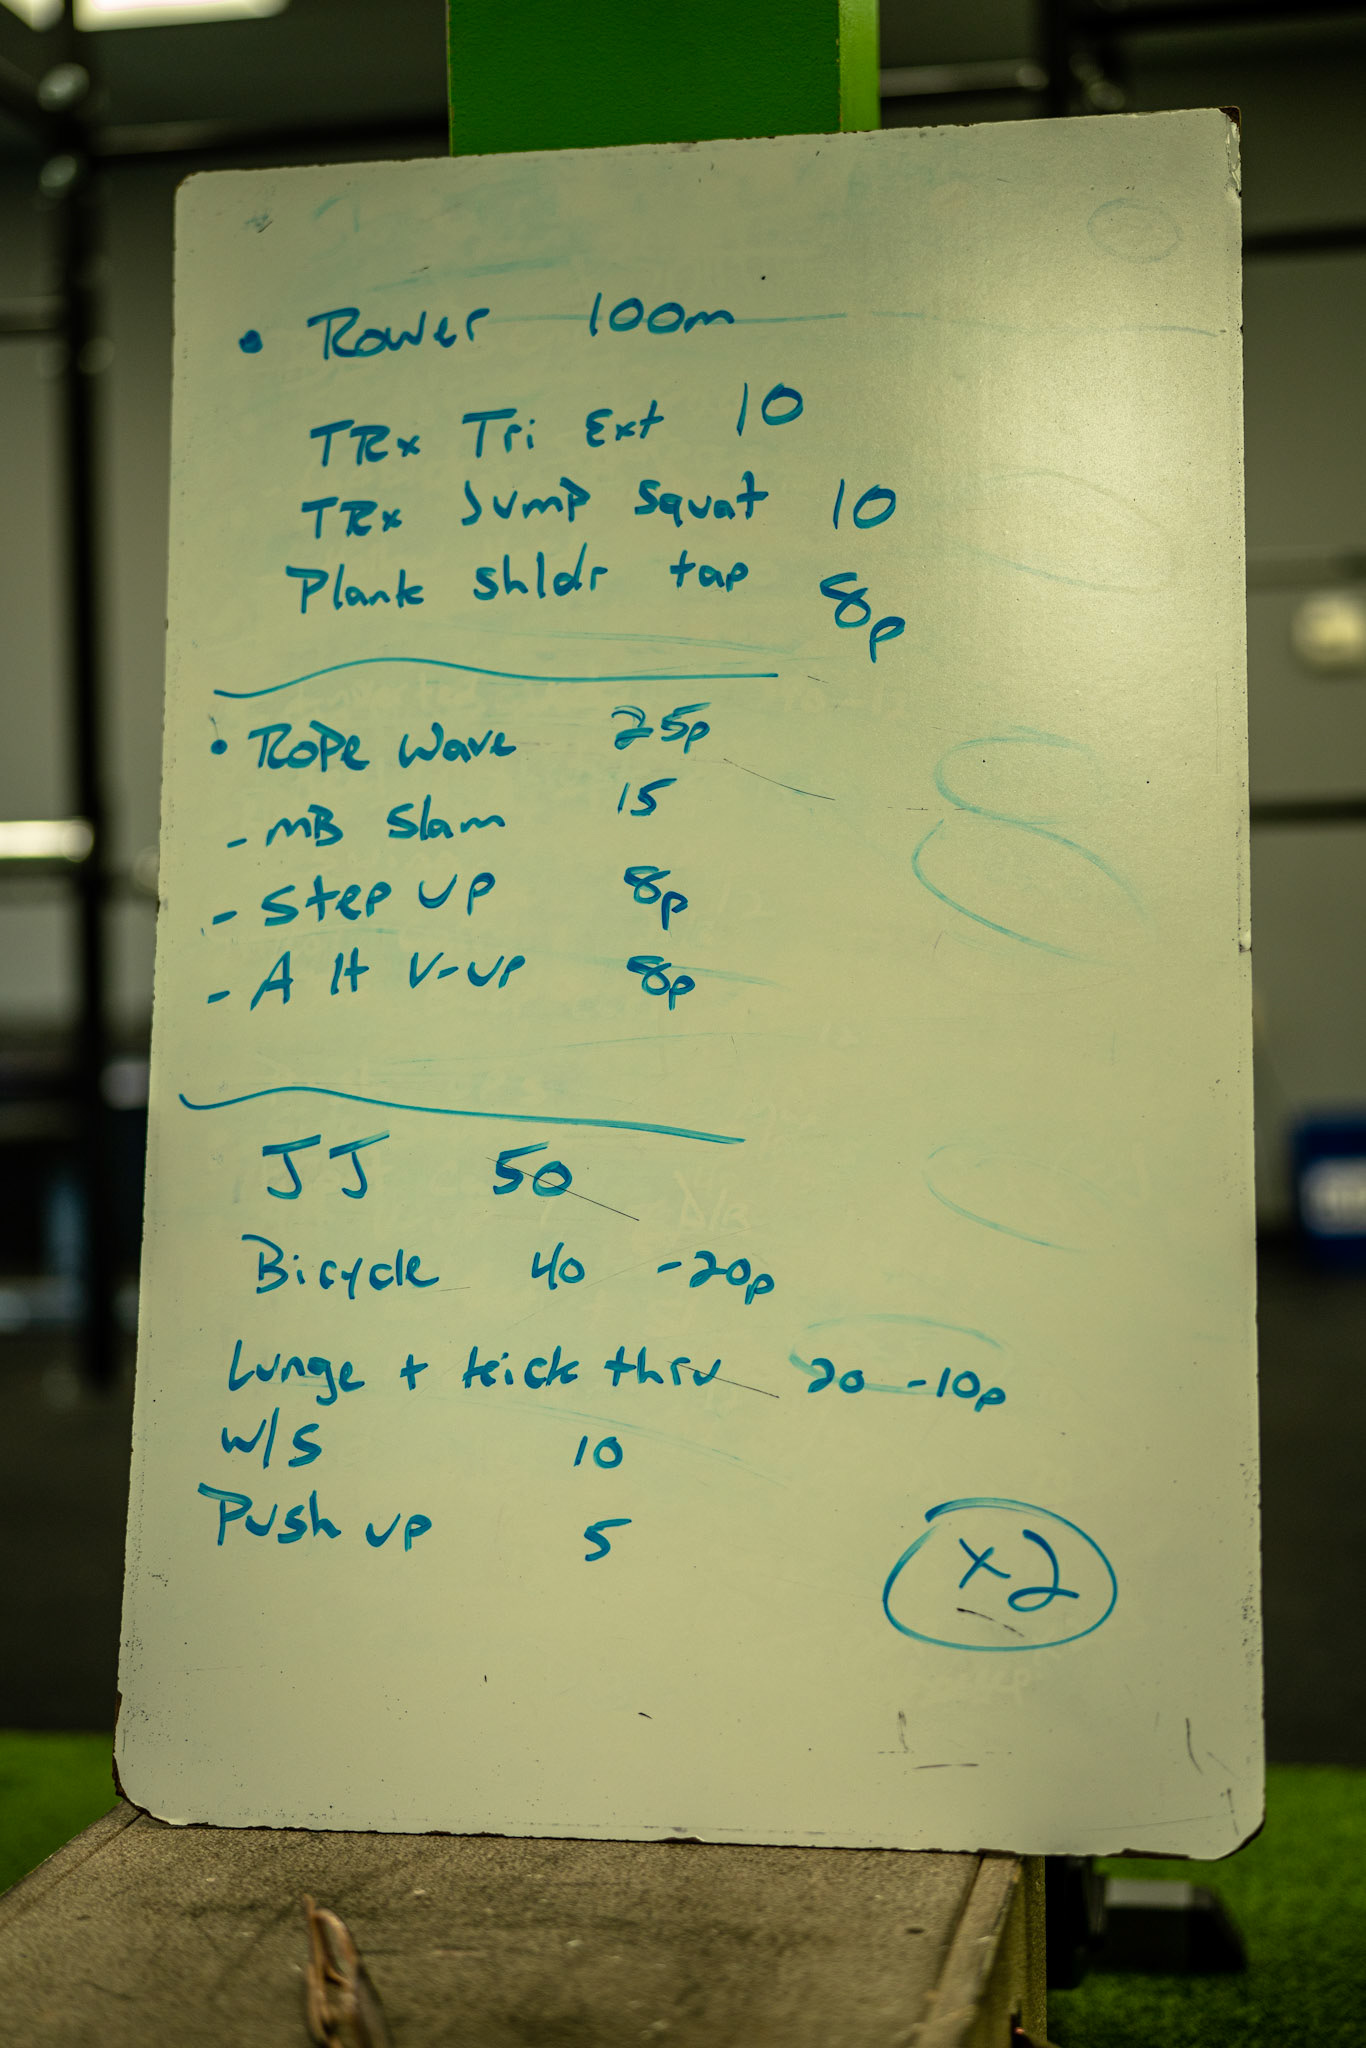 • Rower 100m
TRx Tri Ext 10
TRx Jump Squat 10
Plank shldr tap 8p
• Rope Wave 25p
- MB Slam 15
- Step up 8p
- Alt V-up 8p
JJ 50
Bicycle 40 -20p
Lunge + kick thru 20 -10p
W/S 10
Push up 5
x2